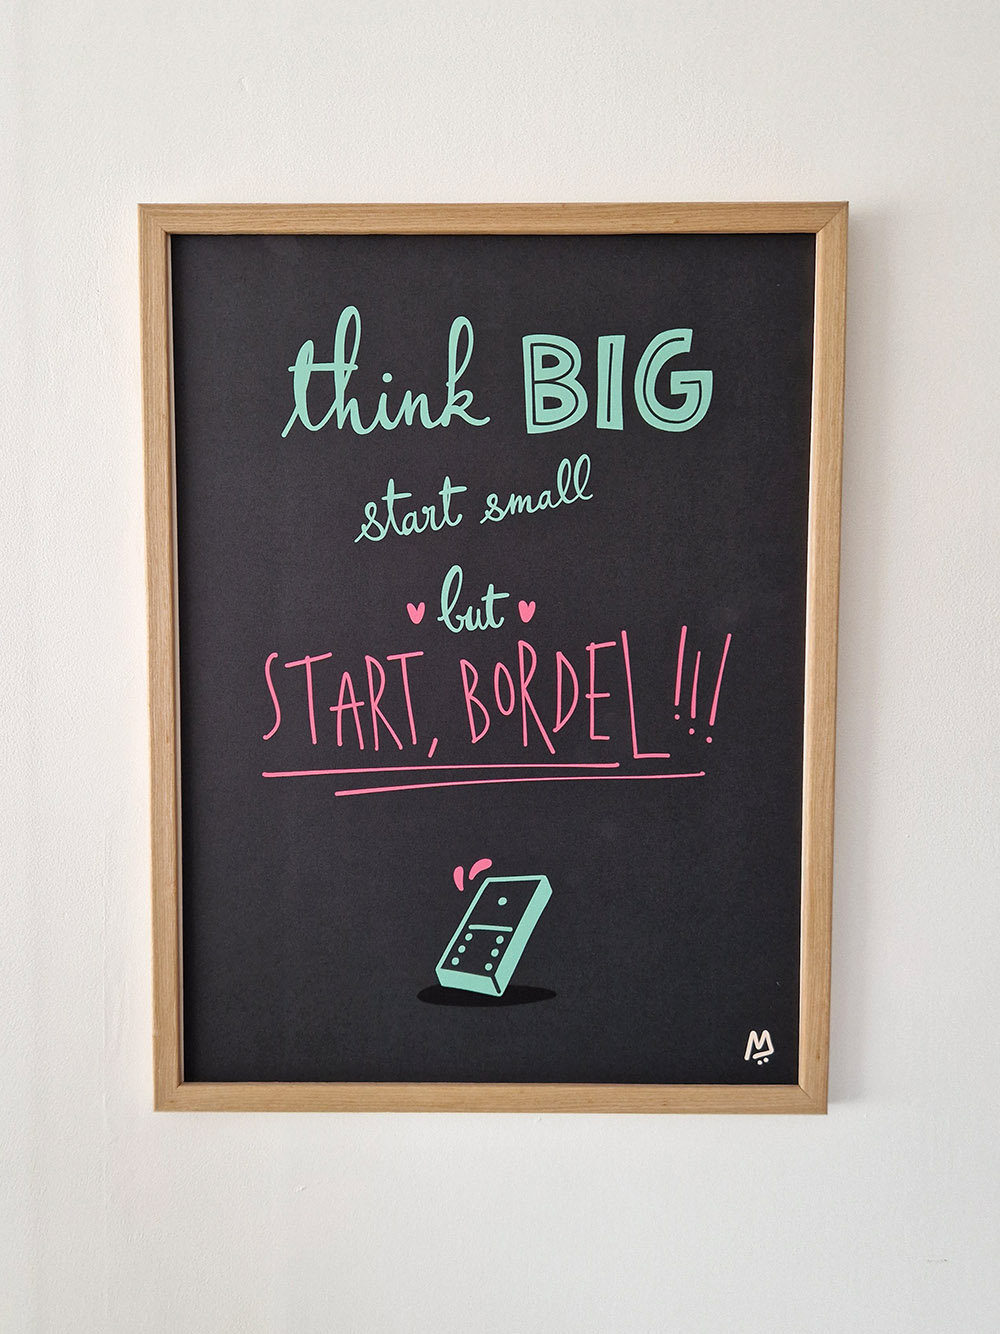 think BIG
start small
but
START, BORDEL !!!